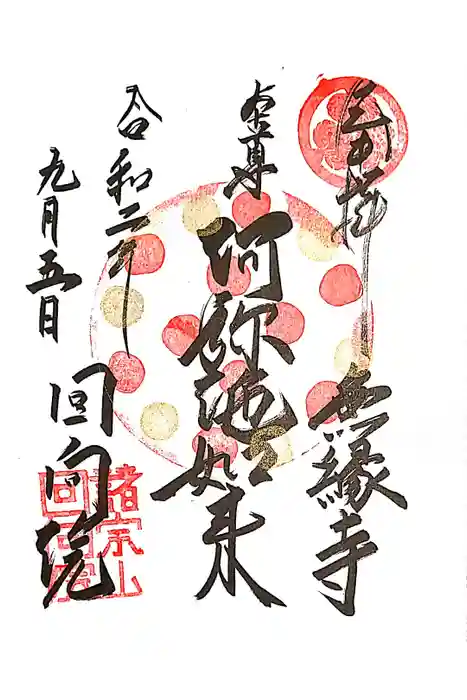 無縁寺
本尊
阿弥陀如来
令和二年
九月五日
回向院
諸宗山
回向院